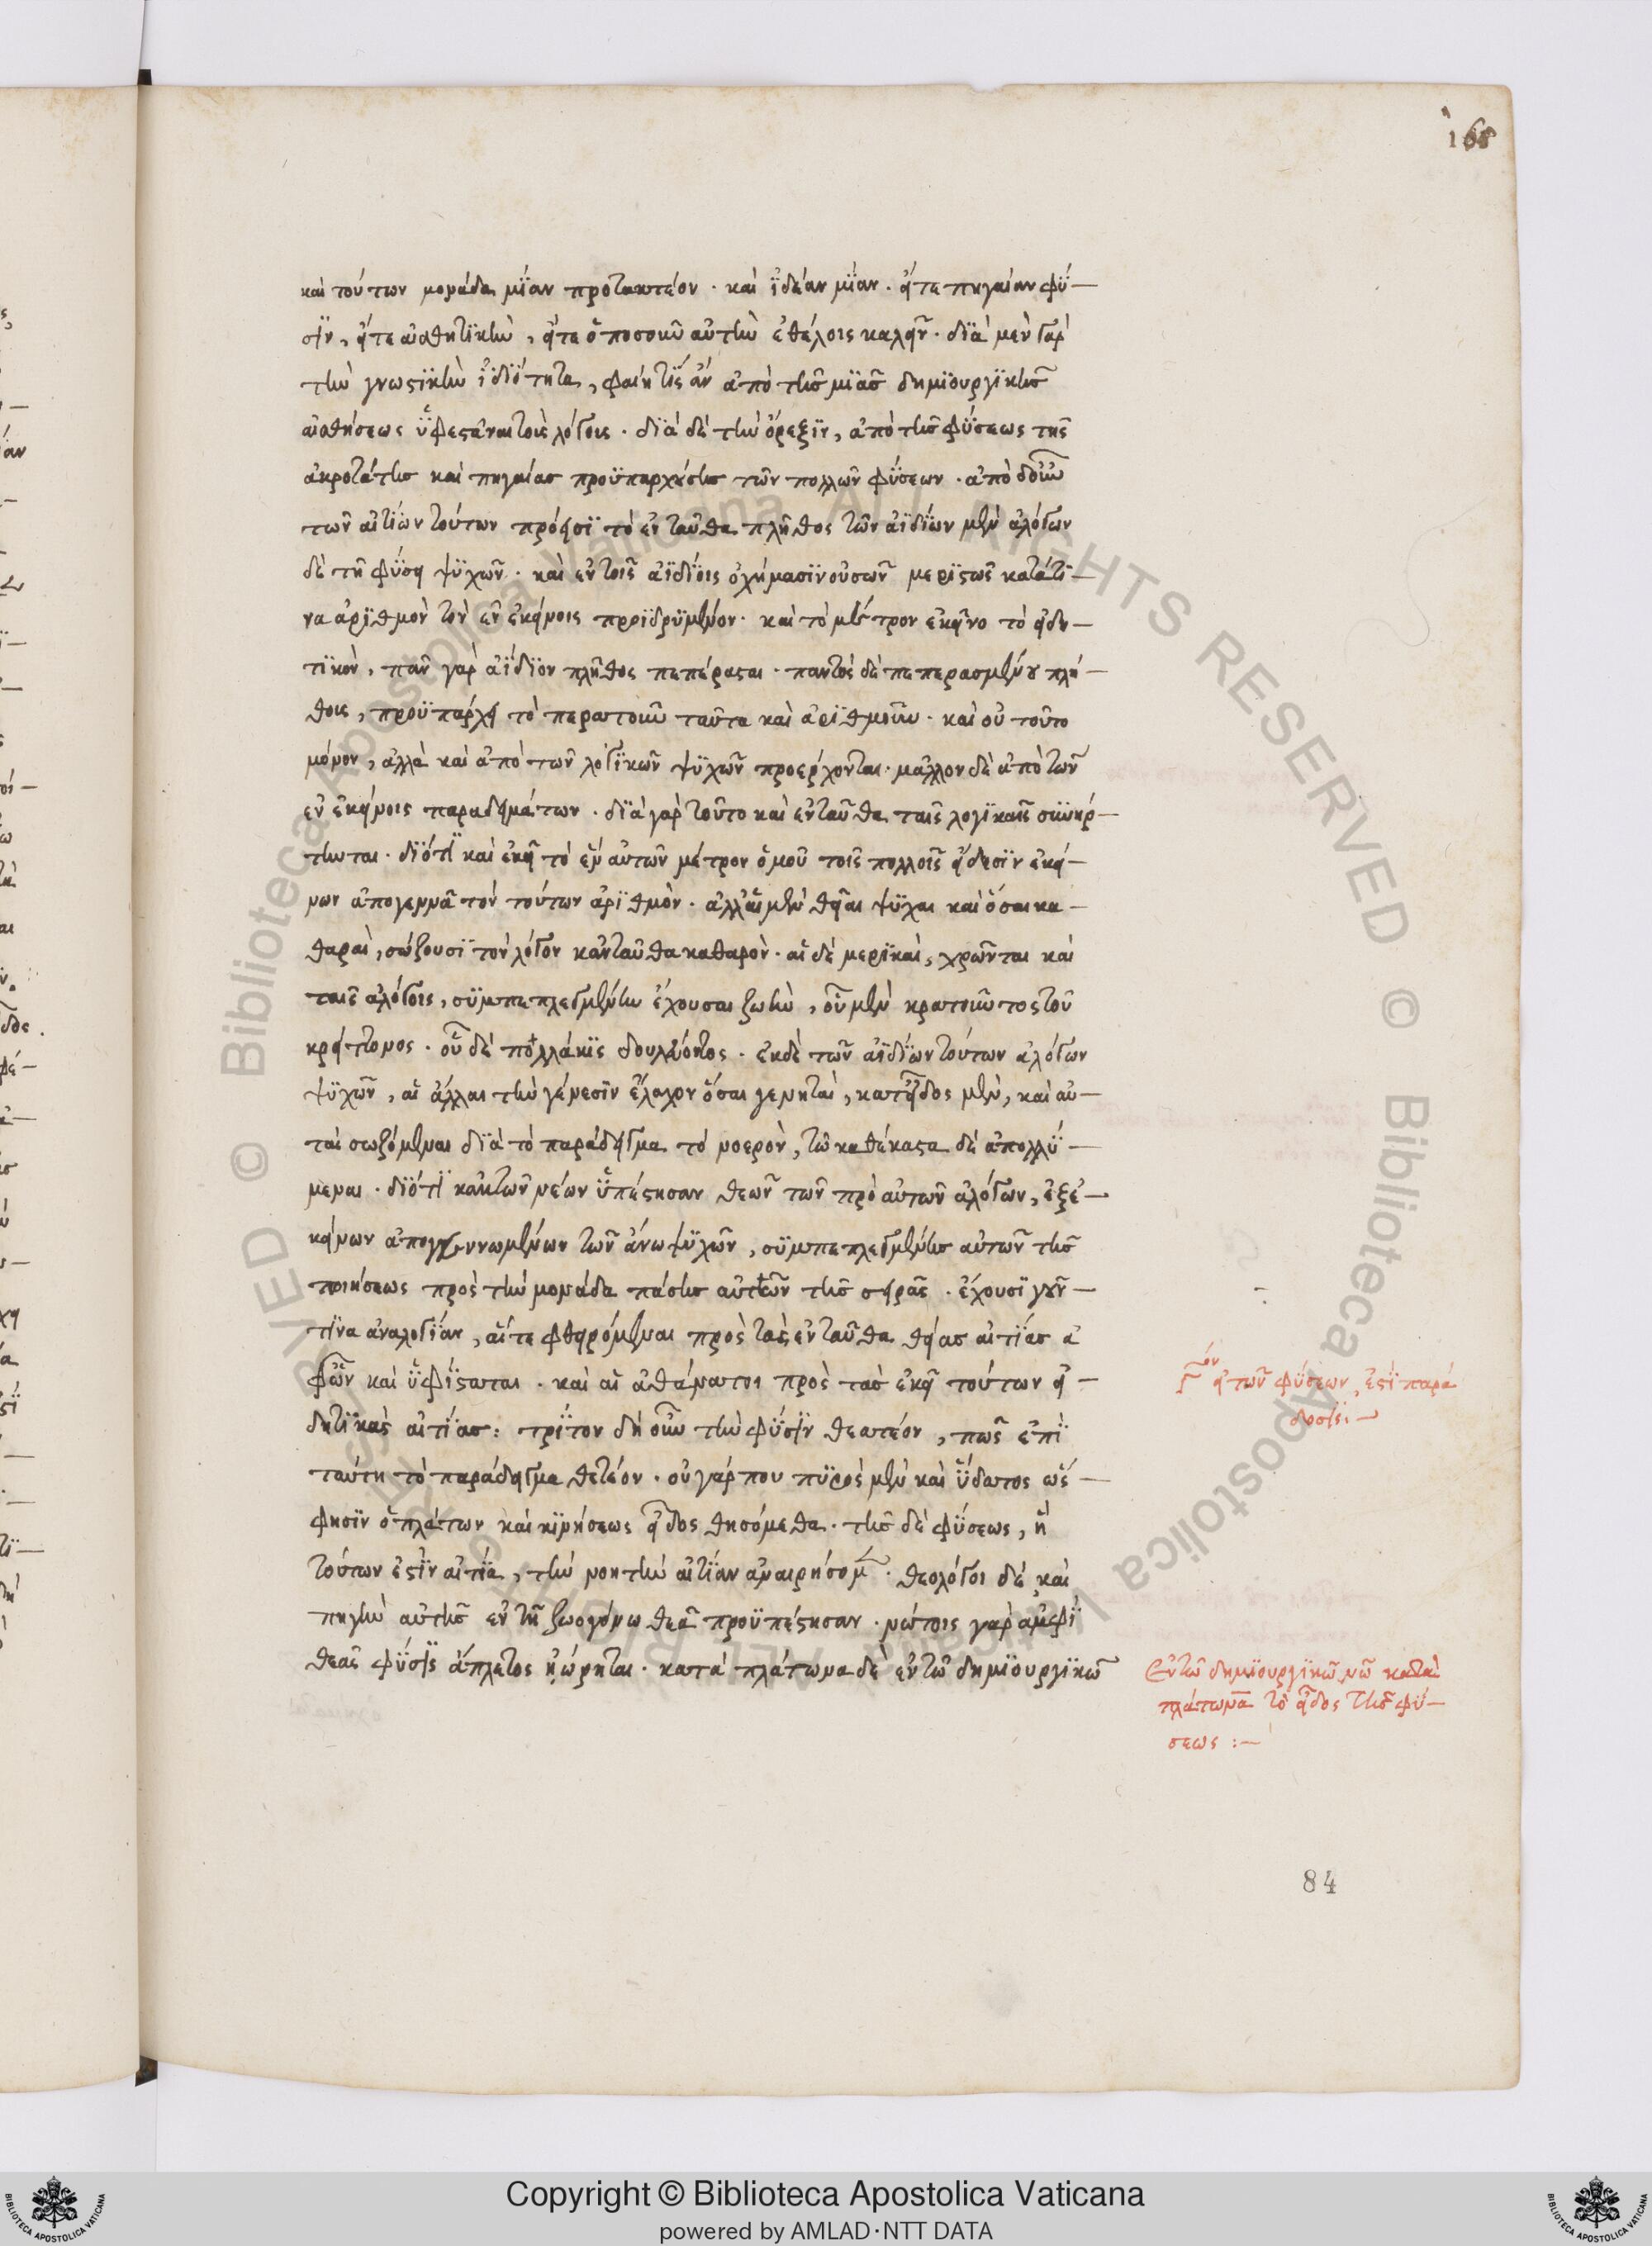 168
καὶ τούτων μονάδα μΐαν προτακτέον · καὶ ἰδέαν μΐαν · εἴτε πηγαίαν φύ—
σϊν, εἴτε αἰσθητϊκὴν, εἴτε ὁποσοῦν αὐτὴν ἐθέλοις καλεῖν · δϊὰ μὲν γὰρ
τὴν γνωστϊκὴν ἰδϊότητα, φαίη τϊς ἂν ἀπὸ τῆς μϊᾶς δημϊουργϊκῆς
αἰσθήσεως ὑφεστάναι τοῖς λόγοις · δϊὰ δὲ τὴν ὄρεξϊν, ἀπὸ τῆς φύσεως τῆς
ἀκροτάτης καὶ πηγαίας προϋπαρχούσης τῶν πολλῶν φύσεων · ἀπὸ δυοῖν
τῶν αἰτϊῶν τούτων πρόεισϊ τὸ ἐνταῦθα πλῆθος τῶν ἀϊδΐων μὲν ἀλόγων
δὲ τῇ φύσει ψϋχῶν · καὶ ἐν τοῖς ἀϊδΐοις ὀχήμασϊν οὐσῶν μερϊστῶς κατά τϊ—
να ἀρϊθμὸν τὸν ἐν ἐκείνοις προϊδρϋμένον · καὶ τὸ μέτρον ἐκεῖνο τὸ εἰδη—
τϊκὸν, πᾶν γὰρ ἀΐδϊον πλῆθος πεπέρασται · παντὸς δὲ πεπερασμένου πλή—
θους, προϋπάρχει τὸ περατοῦν ταῦτα καὶ ἀρϊθμοῦν · καὶ οὐ τοῦτο
μόνον, ἀλλὰ καὶ ἀπὸ τῶν λογϊκῶν ψϋχῶν προέρχονται · μᾶλλον δὲ ἀπὸ τῶν
ἐν ἐκείνοις παραδειγμάτων · δϊὰ γὰρ τοῦτο καὶ ἐνταῦθα ταῖς λογϊκαῖς συνήρ—
τηνται · δϊότϊ καὶ ἐκεῖ τὸ ἓν αὐτῶν μέτρον ὁμοῦ τοῖς πολλοῖς εἴδεσϊν ἐκεί—
νων ἀπογεννᾷ τὸν τούτων ἀρϊθμὸν · ἀλλ' αἱ μὲν θεῖαι ψϋχαι καὶ ὅσαι κα—
θαραὶ, σώζουσϊ τὸν λόγον κἀνταῦθα καθαρὸν · αἱ δὲ μερϊκαὶ, χρῶνται καὶ
ταῖς ἀλόγοις, συμπεπλεγμένην ἔχουσαι ζωὴν, οὐ μὲν κρατοῦντος τοῦ
κρείττονος · οὗ δὲ πολλάκϊς δουλεύοντος · ἐκ δὲ τῶν ἀϊδΐων τούτων ἀλόγων
ψϋχῶν, αἱ ἄλλαι τὴν γένεσϊν ἔλαχον ὅσαι γενηταὶ, κατ' εἶδος μὲν, καὶ αὐ—
ταὶ σωζόμεναι δϊὰ τὸ παράδειγμα τὸ νοερὸν, τῷ καθέκαστα δὲ ἀπολλύ—
μεναι · δϊότϊ κἀκ τῶν νέων ὑπέστησαν θεῶν τῶν πρὸ αὐτῶν ἀλόγων, ἐξ ἐ—
κείνων ἀπογεννωμένων τῶν ἄνω ψϋχῶν, συμπεπλεγμένης αὐτῶν τῆς
ποιήσεως πρὸς τὴν μονάδα πάσης αὐτῶν τῆς σειρᾶς · ἔχουσϊ γοῦν—
τϊνα ἀναλογΐαν, αἵτε φθειρόμεναι πρὸς τὰς ἐνταῦθα θείας αἰτΐας ἀ
φ' ὧν καὶ ὑφΐστανται · καὶ αἱ ἀθάνατοι πρὸς τὰς ἐκεῖ τούτων εἰ—
δητϊκὰς αἰτΐας: τρΐτον δὴ οὖν τὴν φύσϊν θεατέον, πῶς ἐπὶ
ταύτη τὸ παράδειγμα θετέον · οὐ γάρ που πυρὸς μὲν καὶ ὕδατος ὥς—
φησϊν ὁ πλάτων καὶ κϊνήσεως εἶδος θησόμεθα · τῆς δὲ φύσεως, ἣ
τούτων ἐστὶν αἰτΐα, τὴν νοητὴν αἰτΐαν ἀναιρήσομ · θεολόγοι δὲ, καὶ
πηγὴν αὐτῆς ἐν τῇ ζωογόνω θεᾷ προϋπέστησαν · νώτοις γὰρ ἀμφὶ
θεᾶς φύσϊς ἄπλετος ᾐώρηται · κατὰ πλάτωνα δὲ ἐν τῷ δημϊουργϊκῷ
Γον εἰ τῶν φύσεων, ἐστὶ παρά
δοσϊς: —
Ἐν τῷ δημϊουργϊκῷ νῷ κατὰ
πλάτωνα τὸ εἶδος τῆς φύ—
σεως: —
84
© Biblioteca Apostolica Vaticana ALL RIGHTS RESERVED
Copyright © Biblioteca Apostolica Vaticana
powered by AMLAD·NTT DATA